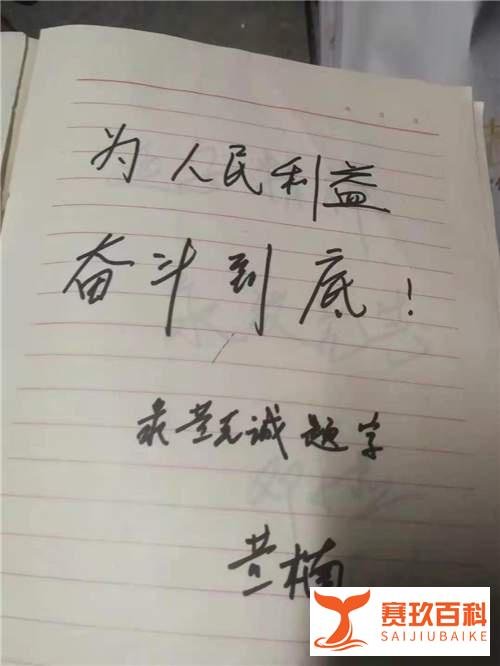 为人民利益
奋斗到底！
录黄克诚题字
黄楠
赛玖百科
SAIJIUBAIKE